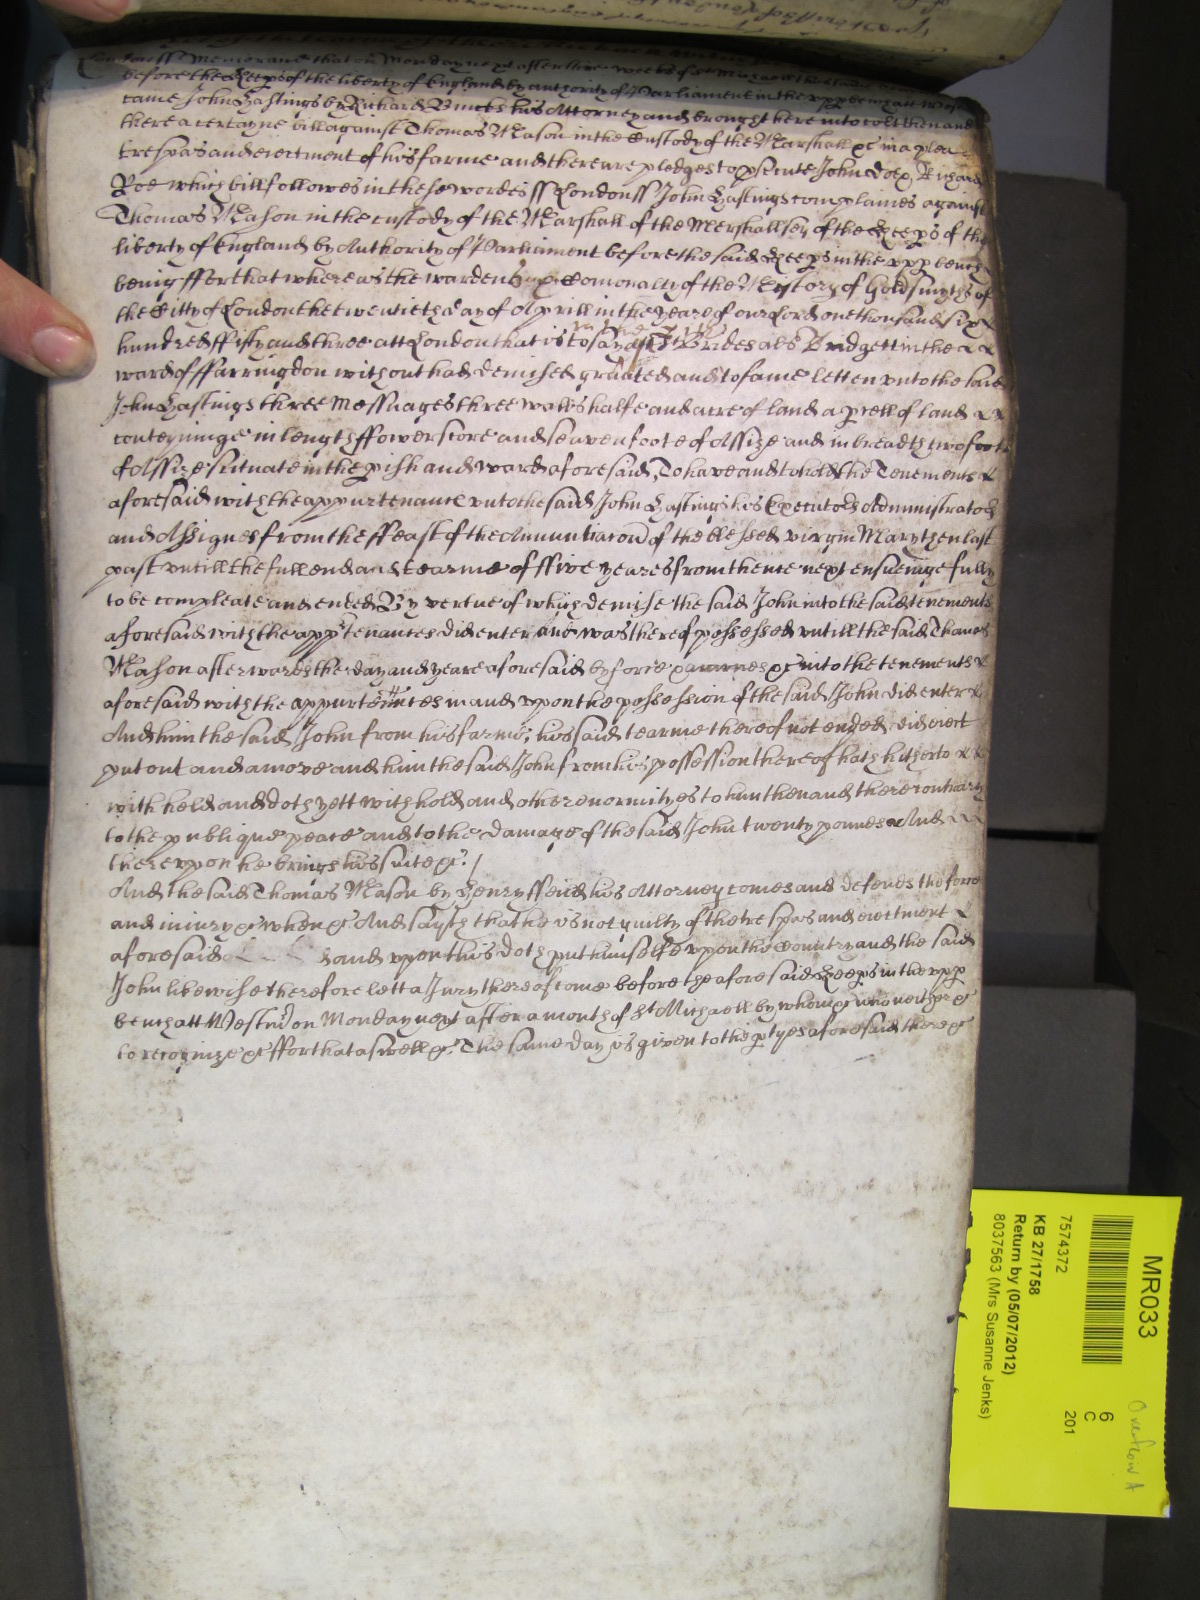 Londonss Memorand that on Monday next after three weekes of St Michaell this same
before the Keeps of the liberty of England by authority of Parliament in the upp bench att Westm
came John Hastings by Richard his Attorney and brought here into cort then and
there a certayne bill against Thomas Mason in the Custody of the Marshall &c in a plea
trespas and eiectment of his farme and there are pledges to psecute John Doe & Richard
Roe which bill followes in these wordes ss Londonss John Hastings complaines against
Thomas Mason in the custody of the Marshall of the Mershallsey of the Keeps of the
liberty of England by Authority of Parliament before the said Keeps in the upp bench
beinig ffor that whereas the wardens & Comonalty of the Mystery of Goldsmyths of
the Citty of London the twentieth day of Aprill in the yeare of our Lord one thousand six
hundred ffifty and three att London that is to say in the pish St Brides als Bridgett in the
ward of ffarringdon without had demised graunted and to farme letten unto the said
John Hastings three Messuages three halfe and acre of land a pcell of land
conteyninge in length ffowerscore and seaven foote of Assize and in breadth two foote
of Assize scituate in the pish and ward aforesaid, To have and to hold the Tenements
aforesaid with the appurtenanc unto the said John Hastings his Executors Administrators
and Assignes from the ffeast of the Annuntiacon of the blessed virgin Mary then last
past untill the full end and tearme of ffive yeares from thence next ensueinge fully
to be compleate and ended By vertue of which demise the said John into the said tenements
aforesaid with the apptenances did enter and was thereof possessed untill the said Thomas
Mason afterwards the day and yeare aforesaid by force & armes &c into the tenements
aforesaid with the appurtenances in and upon the possession of the said John did enter
And him the said John from his farme, his said tearme thereof not ended did eiect
put out and amove and him the said John from his possession thereof hath hitherto
with held and doth yett withhold and other enormityes to him then and there contrary
to the publique peace and to the damage of the said John twenty pounds And
thereupon he brings his suite &c.
And the said Thomas Mason by Henry ffend his Attorney comes and defends the force
and iniury &c when &c And sayth that he is not guilty of the trespas and eiectment
aforesaid and upon this doth put himselfe upon the Country and the said
John likewise therefore lett a Jury thereof come before the aforesaid Keeps in the upp
bench att Westm on Monday next after a month of St Michaell by whom &c who neither &c
to recognize &c ffor that aswell &c. The same day is given to the ptyes aforesaid there &c
MR033
6
C
201
7574372
KB 27/1758
Return by (05/07/2012)
8037563 (Mrs Susanne Jenks)